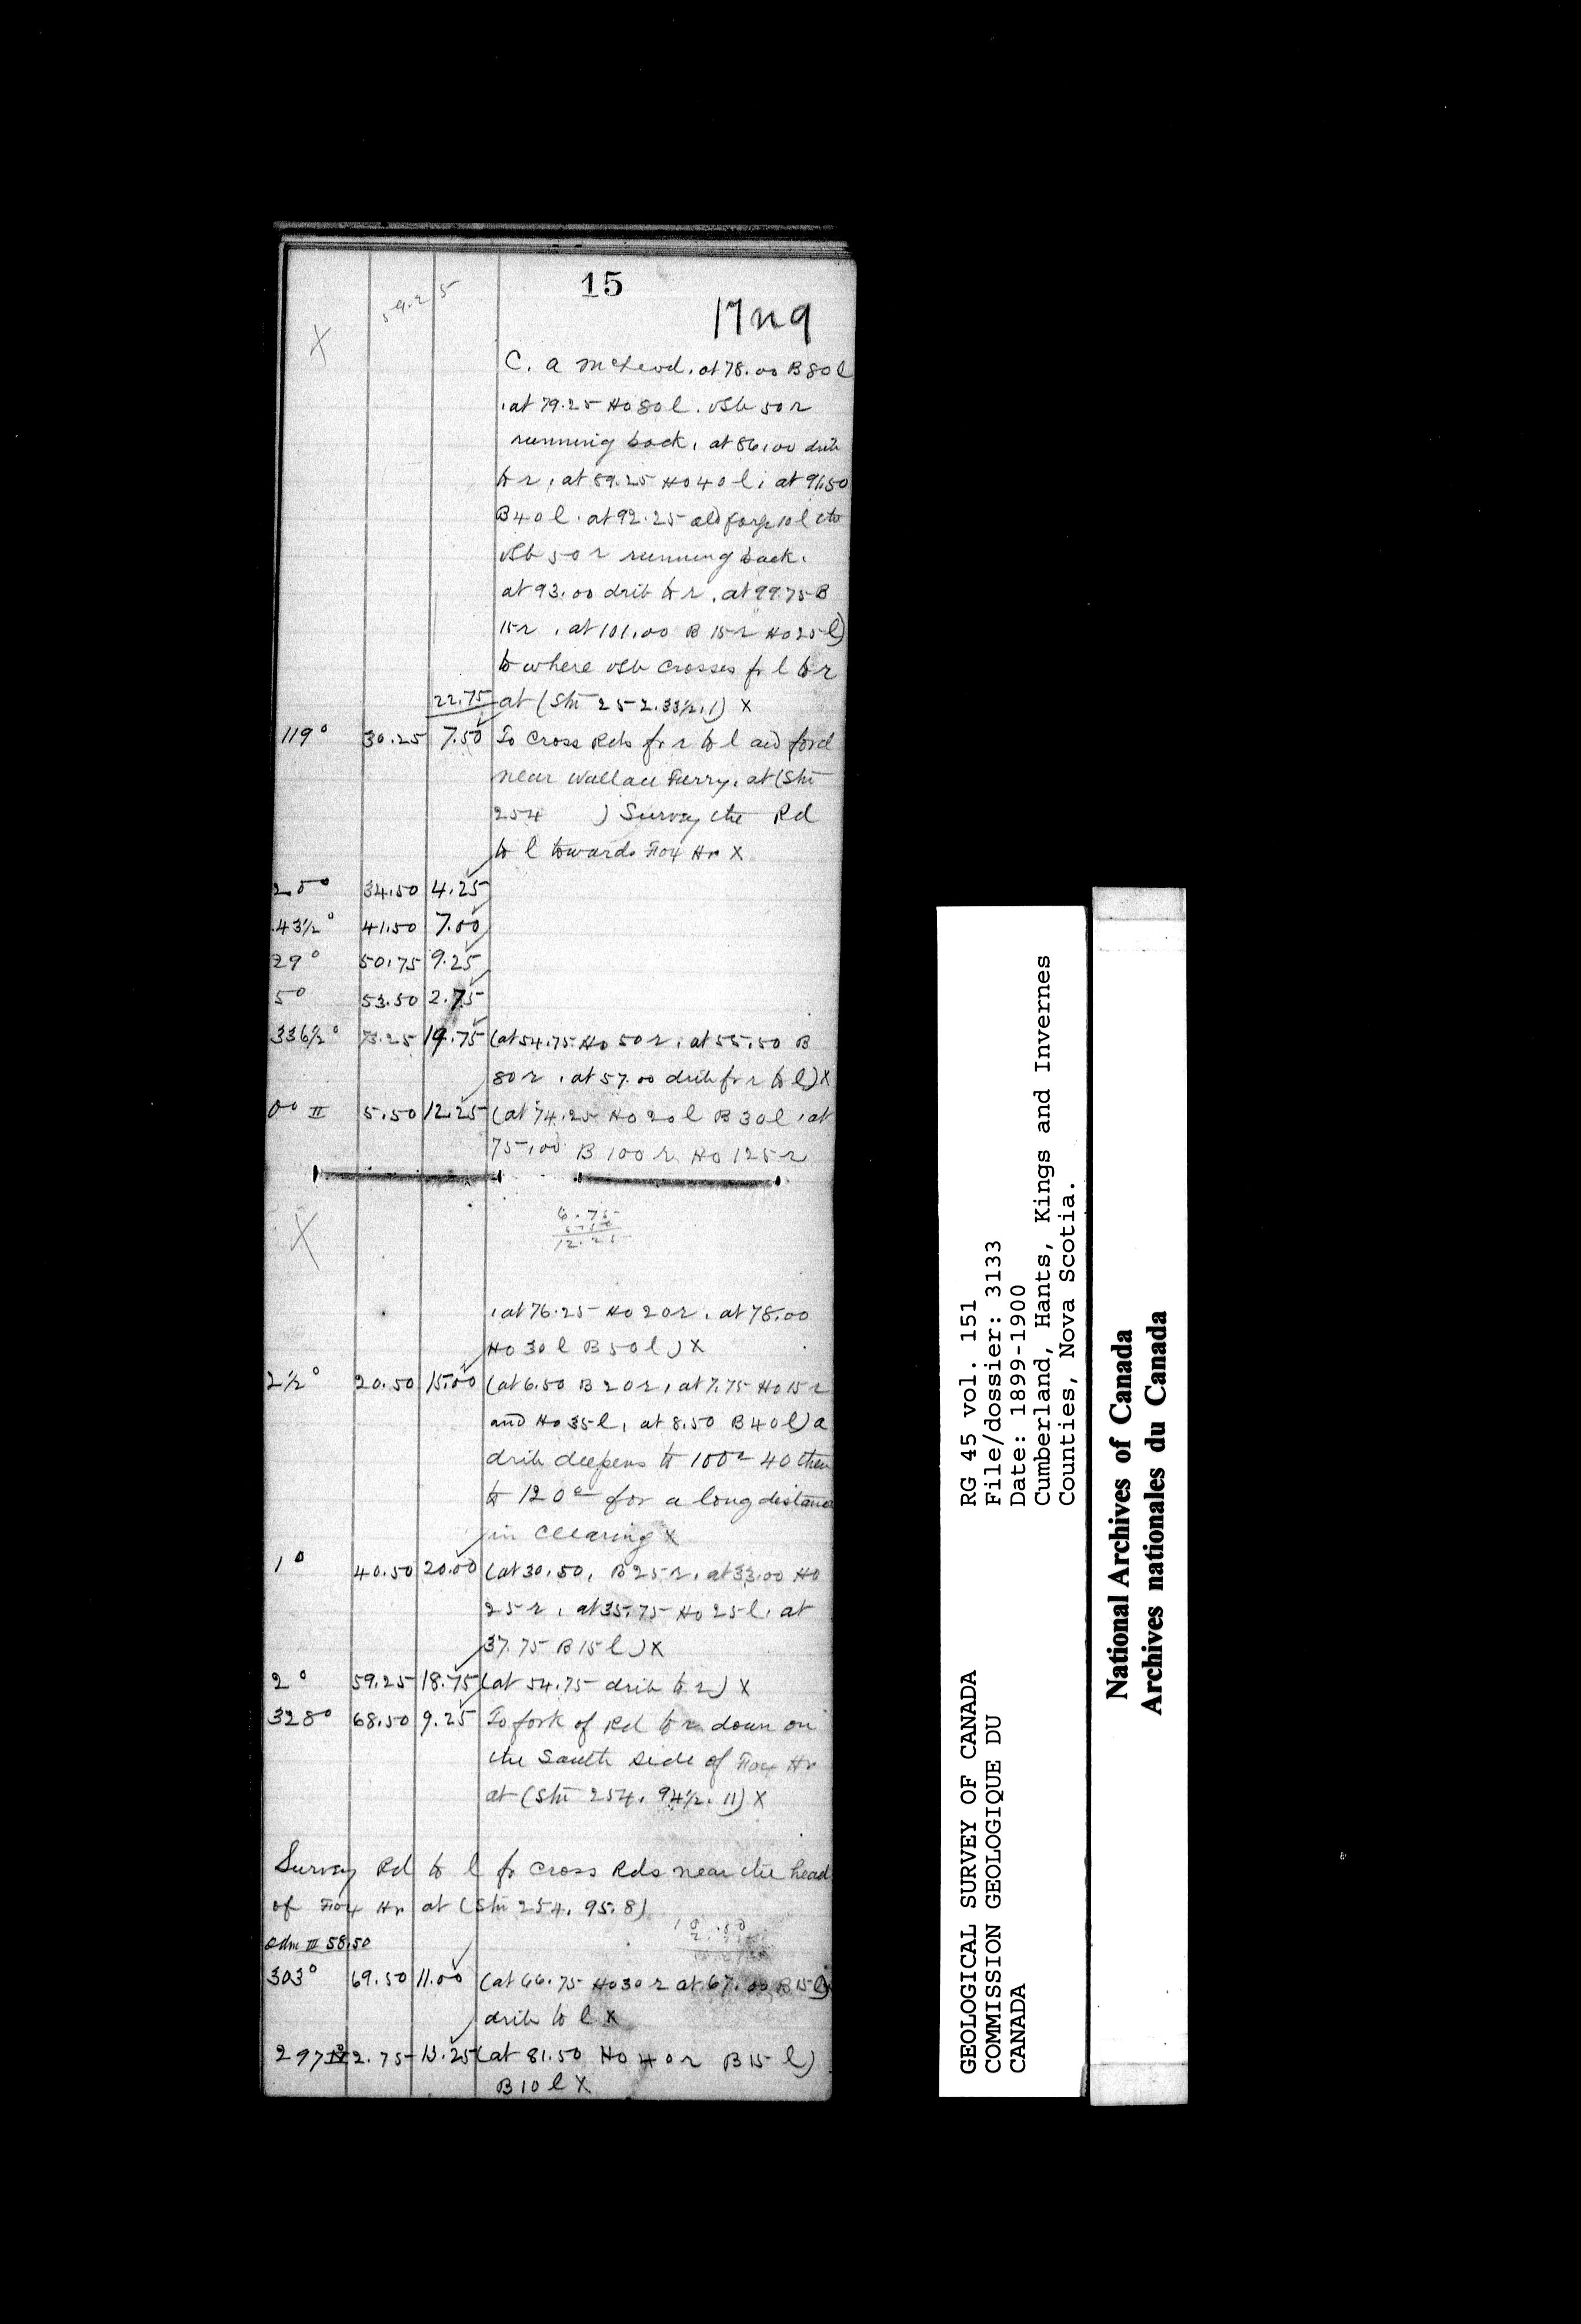 15
59.25
17 n 9
X
C. A McLeod, at 78.00 B 80 l
, at 79.25 Ho 80 l. vSb 50 r
running back, at 86.00 drib
to r, at 89.25 Ho 40 l, at 91.50
B 40 l. at 92.25 old forge 10 l
vSb 50 r running back.
at 93.00 drib to r, at 99.75 B
15 r, at 101.00 B 15 r Ho 25 l)
to where vSb crosses fr l to r
22.75 at (Stn 252.33½.1) X
119° 30.25 7.50 To cross Rds fr r to l and ford
near Wallace Ferry, at (Stn
254 ) Survey the Rd
to l towards Fox Hr X
25° 34.50 4.25
43½° 41.50 7.00
29° 50.75 9.25
5° 53.50 2.75
336½° 73.25 19.75 (at 54.75 Ho 50 r, at 55.50 B
80 r, at 57.00 drib fr r to l) X
0° II 5.50 12.25 (at 74.25 Ho 20 l B 30 l, at
75.00 B 100 r Ho 125 r
X
6.75
5.50
12.25
, at 76.25 Ho 20 r, at 78.00
Ho 30 l B 50 l) X
2½° 20.50 15.00 (at 6.50 B 20 r, at 7.75 Ho 15 r
and Ho 35 l, at 8.50 B 40 l) a
drib deepens to 100 40 then
to 120 for a long distance
in Clearing X
1° 40.50 20.00 (at 30.50, B 25 r, at 33.00 Ho
25 r, at 35.75 Ho 25 l, at
37.75 B 15 l) X
2° 59.25 18.75 (at 54.75 drib to r) X
328° 68.50 9.25 To fork of Rd to r down on
the South side of Fox Hr
at (Stn 254. 94½. 11) X
Survey Rd to l fr cross Rds near the head
of Fox Hr at (Stn 254. 95. 8)
Odm III 58.50
303° 69.50 11.00 (at 66.75 Ho 30 r at 67.00 B 15 l)
drib to l X
297 2.75 13.25 (at 81.50 Ho 40 r B 15 l)
B 10 l X
GEOLOGICAL SURVEY OF CANADA
COMMISSION GEOLOGIQUE DU
CANADA
RG 45 vol. 151
File/dossier: 3133
Date: 1899-1900
Cumberland, Hants, Kings and Invernes
Counties, Nova Scotia.
National Archives of Canada
Archives nationales du Canada